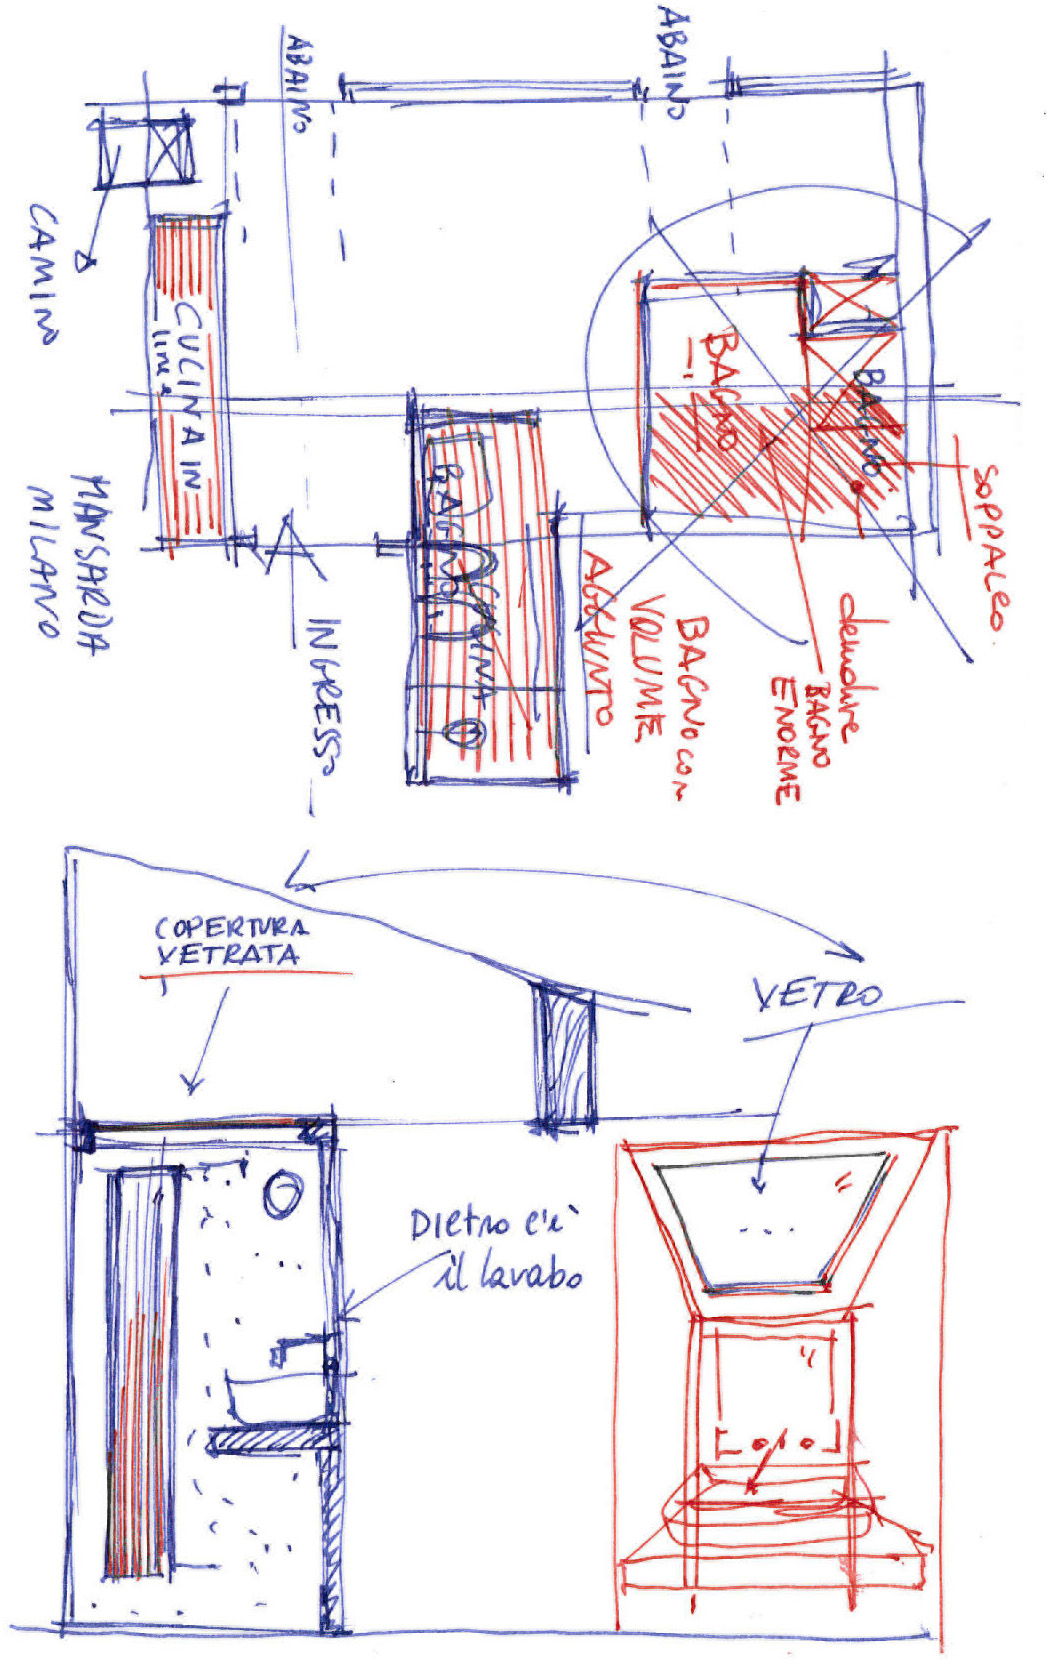 ABAINO
ABAINO
CAMINO
CUCINA IN
linea
BAGNO
BAGNO
SOPPALCO
MANSARDA
MILANO
INGRESSO
BAGNO
CUCINA
BAGNO CON
VOLUME
AGGIUNTO
demolire
BAGNO
ENORME
COPERTURA
VETRATA
VETRO
Dietro c'è
il lavabo